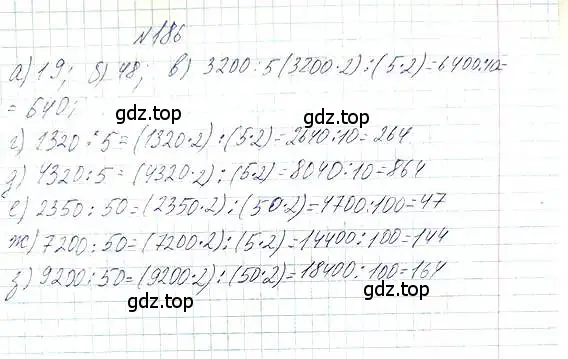 №186
а) 19; б) 48; в) 3200:5(3200·2):(5·2)=6400:10=
= 640;
г) 1320:5=(1320·2):(5·2)=2640:10=264
д) 4320:5=(4320·2):(5·2)=8040:10=864
е) 2350:50=(2350·2):(50·2)=4700:100=47
ж) 7200:50=(7200·2):(5·2)=14400:100=144
з) 9200:50=(9200·2):(50·2)=18400:100=164
gdz.top
gdz.top
gdz.top
gdz.top
gdz.top
gdz.top